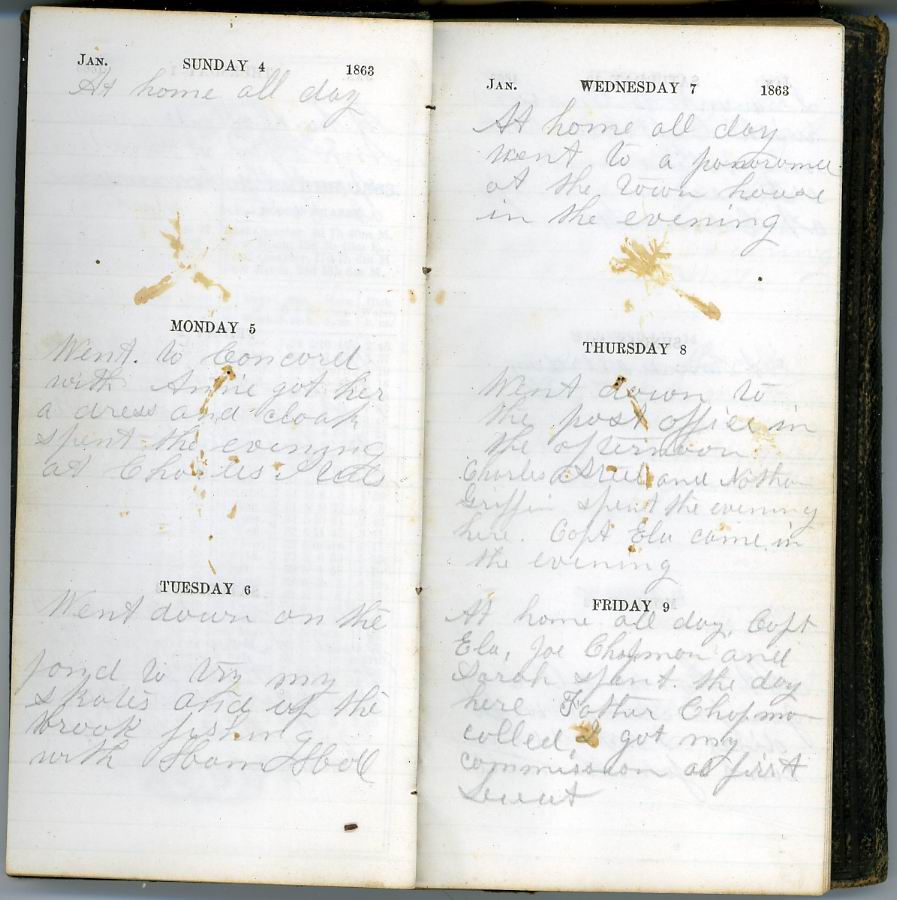 JAN. SUNDAY 4 1863
At home all day
MONDAY 5
Went to Concord
with Anne got her
a dress and cloak
spent the evening
at Charles
TUESDAY 6
Went down on the
pond to try my
skates and up the
brook fishing
with
JAN. WEDNESDAY 7 1863
At home all day
went to a panorama
at the Town house
in the evening
THURSDAY 8
Went down to
the post office in
the afternoon
Charles and Nathan
Griffin spent the evening
here. Capt Ela came in
the evening
FRIDAY 9
At home all day, Capt
Ela, Joe Chapman and
Sarah spent the day
here Father Chapman
called, I got my
commission as first
Lieut